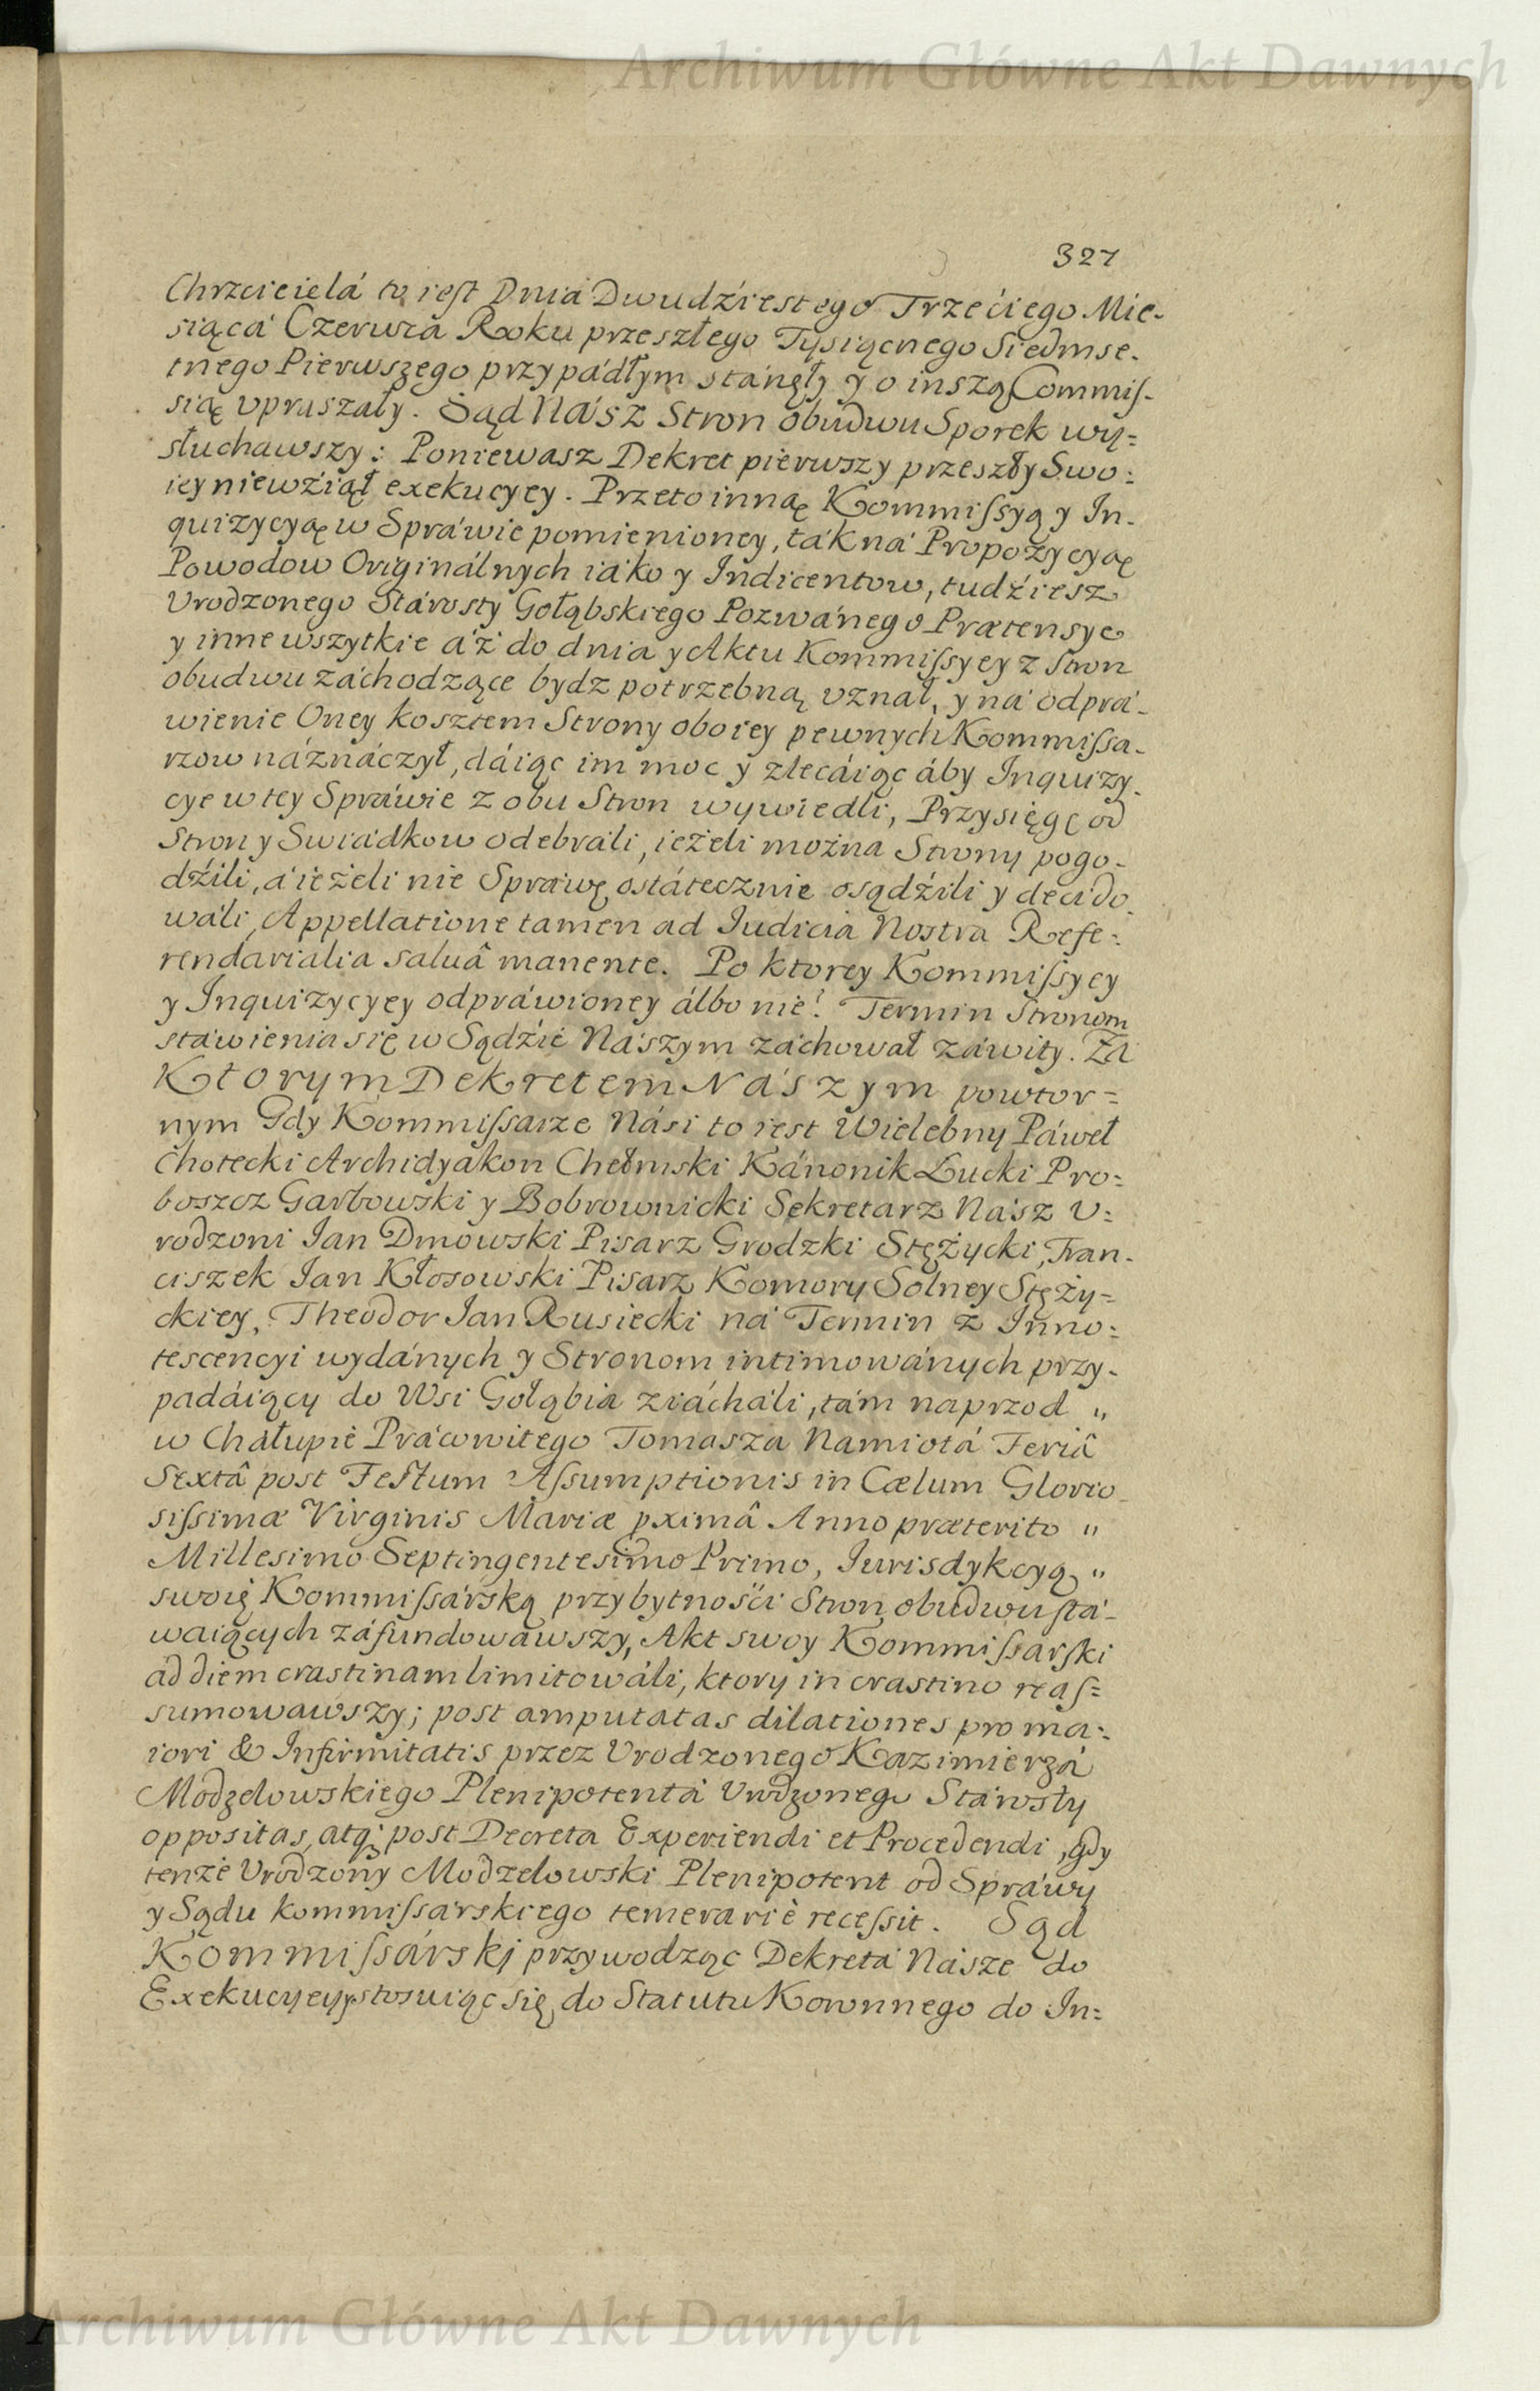 Archiwum Główne Akt Dawnych
327
Chrzcicielá to iest Dnia Dwudźiestego Trzećiego Mie-
siącá Czerwca Roku przeszłego Tysiącnego Siedmse-
tnego Pierwszego przypádłym stánęły y o inszą Commis-
sią vpraszały. Sąd Nász Stron obudwu Sporek wy=
słuchawszy: Poniewasz Dekret pierwszy przeszły Swo:
iey niewźiął exekucyey. Przeto inną Kommissyą y In-
quizycyą w Spráwie pomienioney, ták ná Propozycyą
Powodow Originálnych iáko y Indicentow, tudźiesz
Vrodzonego Stárosty Gołąbskiego Pozwánego Prætensye
y inne wszytkie áż do dnia y Aktu Kommissyey z Stron
obudwu záchodzące bydz potrzebną vznał, y ná odprá-
wienie Oney kosztem Strony oboiey pewnych Kommissa-
rzow náznáczył, dáiąc im moc y zlecáiąc áby Inquizy-
cye w tey Spráwie z obu Stron wywiedli, Przysięgę od
Stron y Swiádkow odebráli, ieżeli można Strony pogo-
dźili, á ieżeli nie Spráwę ostátecznie osądźili y decido-
wáli, Appellatione tamen ad Iudicia Nostra Refe:
rendarialia saluâ manente. Po ktorey Kommissyey
y Inquizycyey odpráwioney álbo nie? Termin Stronom
stáwienia się w Sądźie Nászym záchował záwity. Zá
Ktorym Dekretem Nászym powtor=
nym Gdy Kommissarze Násι to iest Wielebny Páweł
Chotecki Archidyakon Chełmski Kánonik Łucki Pro:
boszcz Garbowski y Bobrownicki Sekretarz Nász V:
rodzoni Ian Dmowski Pisarz Grodzki Stężycki, Fran-
ciszek Ian Kłosowski Pisarz Komory Solney Stęży=
ckiey, Theodor Ian Rusiecki ná Termin z Inno:
tescencyi wydánych y Stronom intimowánych przy-
padáiący do Wsi Gołąbia ziácháli, tám naprzod "
w Chałupie Prácowitego Tomasza Namiotá Feriâ
Sextâ post Festum Assumptionis in Cælum Glorio-
sissimæ Virginis Mariæ pximâ Anno præterito "
Millesimo Septingentesimo Primo, Iurisdykcyą "
swoię Kommissárską przy bytnośći Stron obudwu stá-
waiących záfundowawszy, Akt swoy Kommissarski
ad diem crastinam limitowáli, ktory in crastino reas=
sumowawszy; post amputatas dilationes pro ma:
iori & Infirmitatis przez Vrodzonego Kazimierzá
Modzelowskiego Plenipotentá Vrodzonego Stárosty
oppositas, atq; post Decreta Experiendi et Procedendi, gdy
tenże Vrodzony Modzelowski Plenipotent od Spráwy
y Sądu kommissárskiego temerariè recessit. Sąd
Kommissárski przywodząc Dekretá Násze do
Exekucyey y stosuiąc się do Statutu Koronnego do In=
Archiwum Główne Akt Dawnych